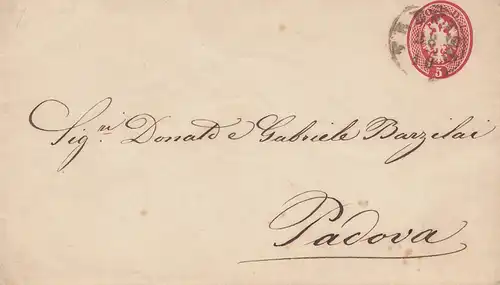 5
Sig.ni Donato e Gabriele Barzilai
Padova